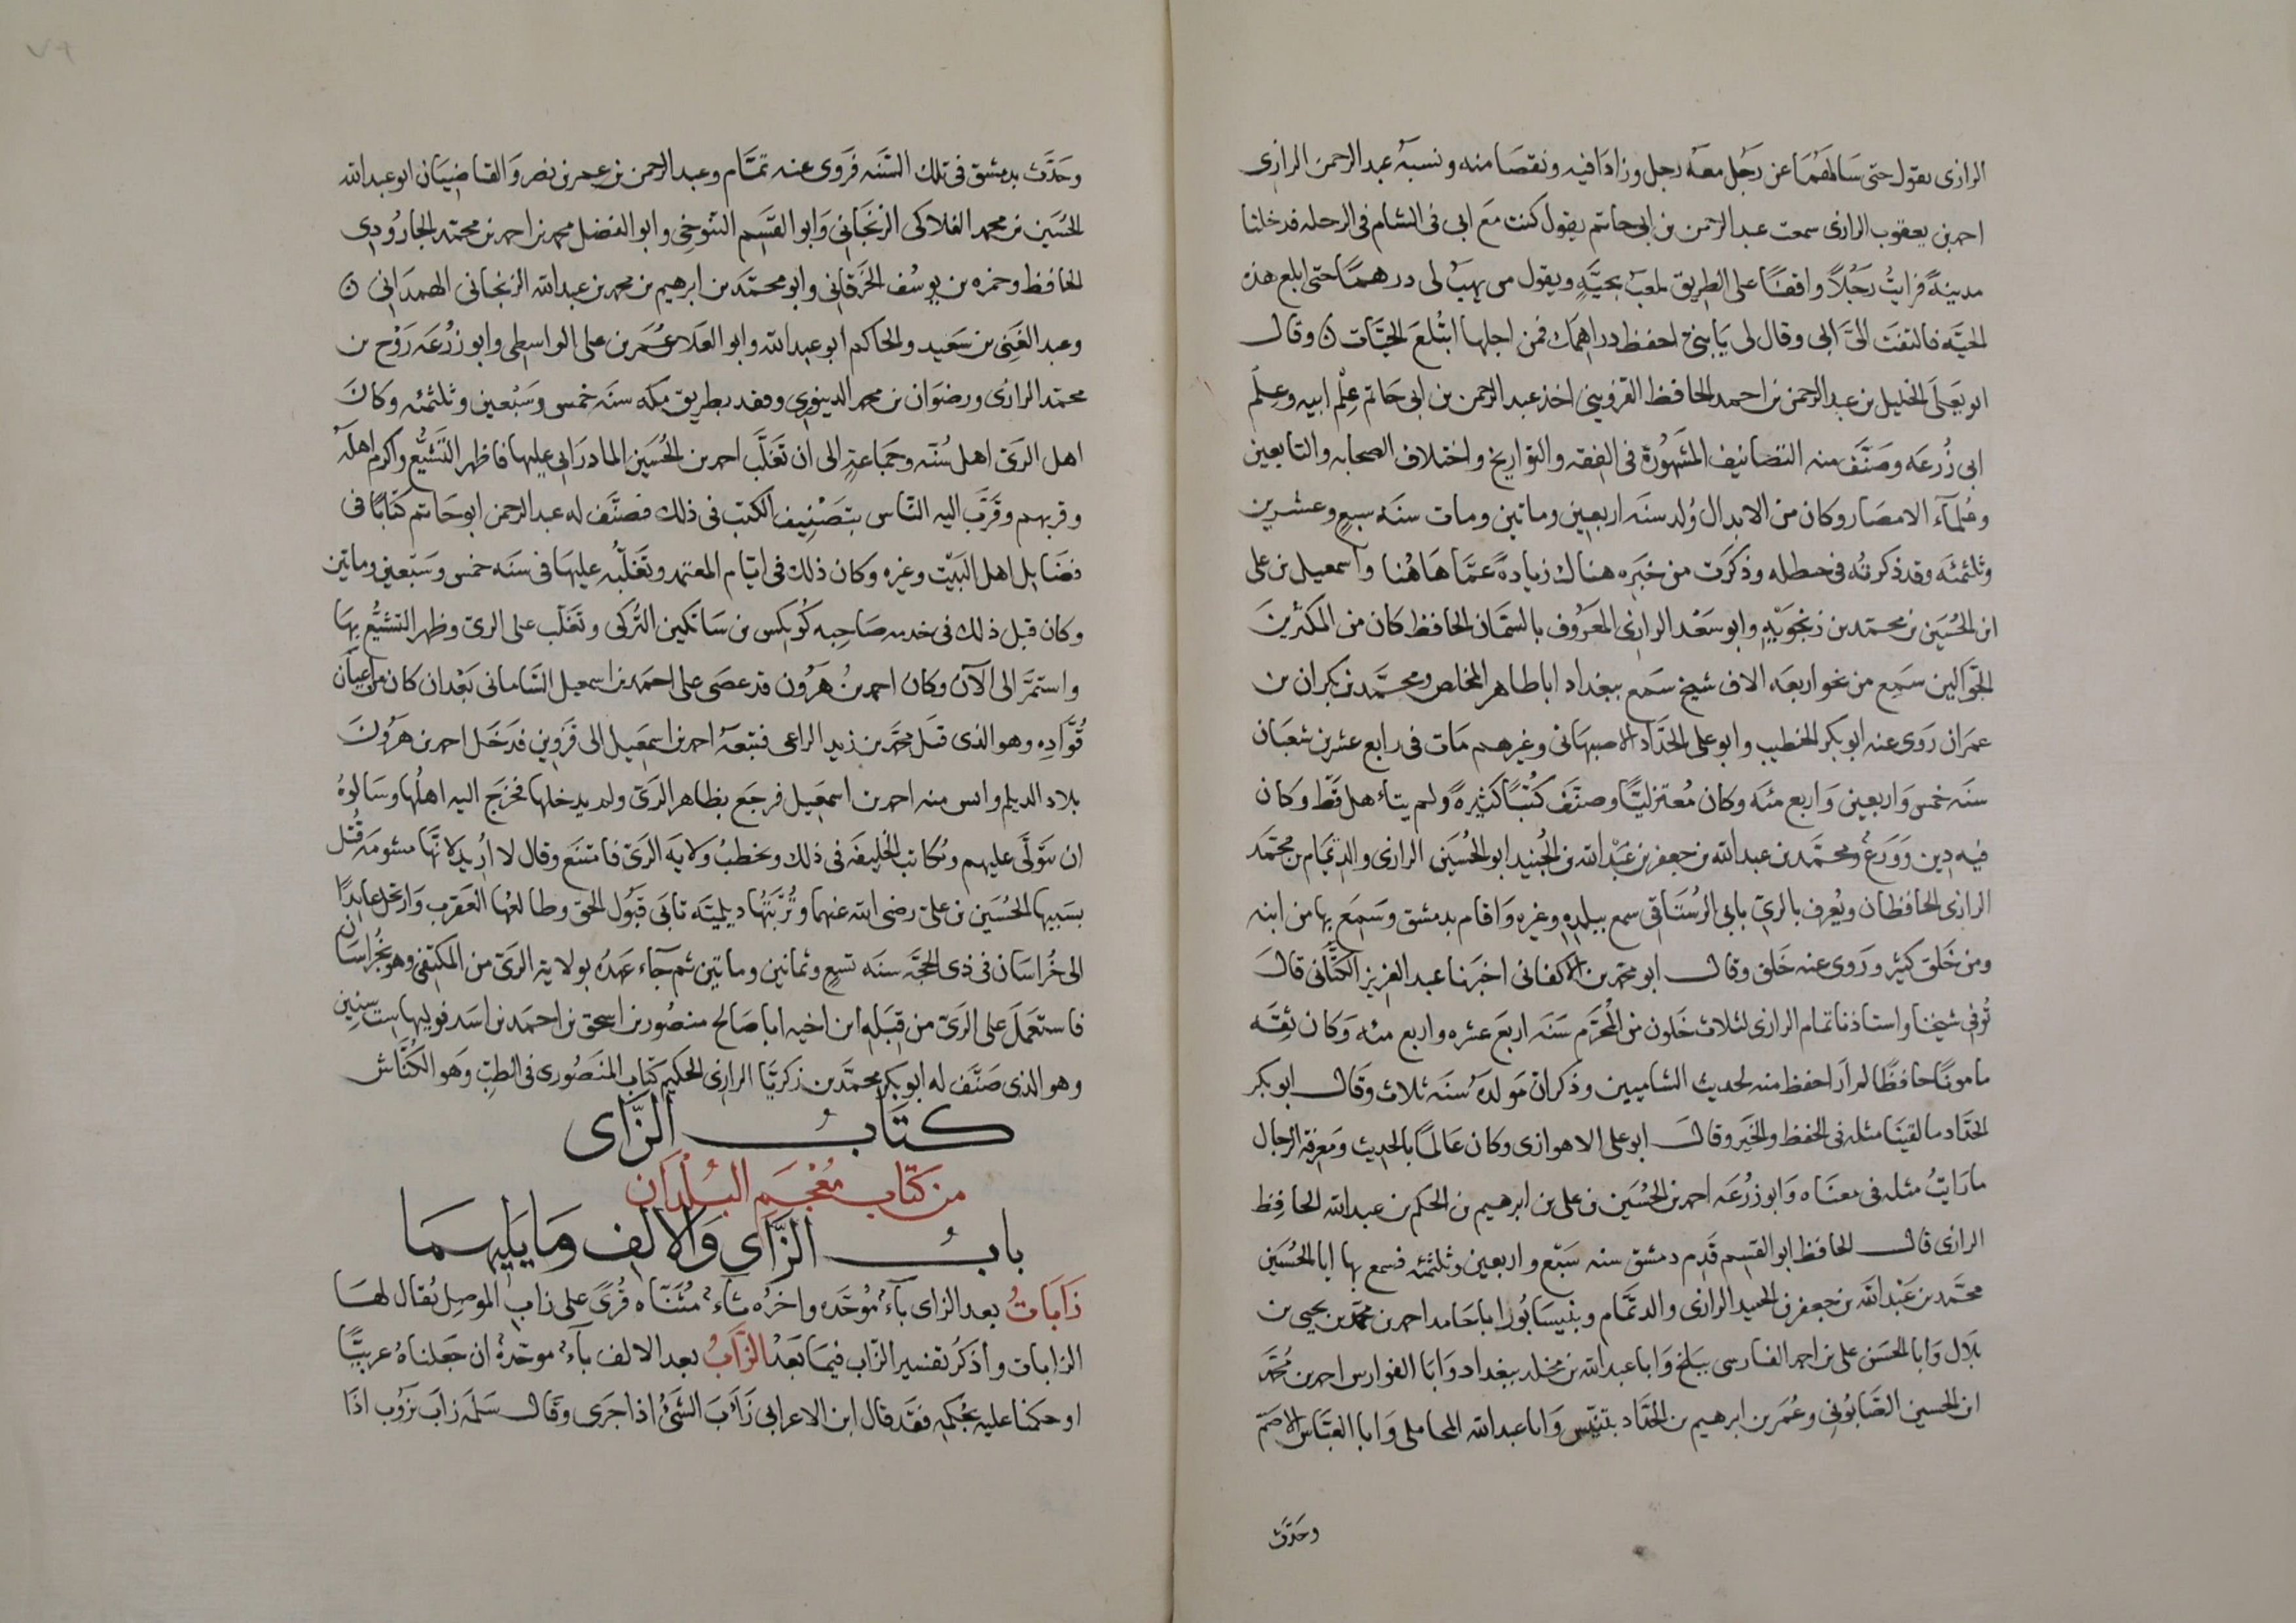 الرازى يقول حتى سالهما عن رجل معه رجل وزادا فيه ونقصا منه ونسبه عبد الرحمن الرازى
احمد بن يعقوب الرازى سمعت عبد الرحمن بن ابى حاتم يقول كنت مع ابى فى الشام فى الرحله فدخلنا
مدينةً فرايتُ رَجُلاً واقفًا على الطريق يلعب بحيَّةٍ ويقول من يهب لى درهمًا حتى ابلع هذه
الحيَّه فالتفتَ الىَّ ابى وقال لى يَا بنىّ احفظ دراهمك فمن اجلها ابْتُلعَ الحيّات ن وقال
ابو يَعلَى الخليل بن عبد الرحمن بن احمد الحافظ القزوينى اخذ عبد الرحمن بن ابى حَاتم عِلْم ابيه وعِلم
ابى زُرعَه وصَنَّف منه التصانيف المشهُورة فى الفقه والتواريخ واختلاف الصحابه والتابعين
وعُلمآء الامصار وكان من الابدال وُلد سنَه اربعين وماتين ومات سنَه سبعٍ وعشرين
وثلثمئَه وقد ذكرته فى حنظله وذكرت من خبَرِه هناك زيادةً عمَّا هَاهُنا واسمعيل بن على
ابن الحُسَين بن محمّد بن زنجَوَيْهِ وابو سَعْد الرازى المعرُوف بالسمّان الحافظ كان من المكثرينَ
الجوّالين سَمِع من نحو اربعَه الاف شيخ سَمع ببغداد ابا طاهر المخلص ومحمَّد بن بكران بن
عمرَان رَوى عنه ابو بكر الخطيب وابو على الحدَّاد الاصبهانى وغيرهم مَات فى رابع عشر بن شعبَان
سنَه خمس وَاربعين وَاربع مئَه وكان مُعتزليًّا وصنَّفَ كتُبًا كثيرةً ولم يتأهل قَطّ وكان
فيه دِين وَوَرعٌ ومحمّد بن عبد الله بن جعفر بن عَبْد الله بن الجُنيد ابو الحُسَين الرازى والد تمّام بن محمّد
الرازى الحافظان ويُعرف بالرىّ بابى الرُستَاقى سمع ببلدِه وغيره وَاقام بدمشق وسَمِعَ بها من ابنه
ومن خَلق كثير ورَوى عنه خَلق وقال ابو محمّد بن الاكفانى اخبَرنا عبد العزيز الكتَّانى قالَ
تُوفى شيخنا واستاذنا تمام الرازى لثلاث خَلون من المُحرَّم سَنَه اربعَ عشره واربع مئه وَكان ثِقَه
مامونًا حافظًا لم اَر احفظ منه لحديث الشاميين وذكر ان مَولدَهُ سنَه ثلاث وَقال ابو بكر
الحدّاد ما لقينَا مثله فى الحفظ والخَير وقالَ ابو على الاهوازى وكان عَالمًا بالحديث ومَعرفة الرجال
ما رَايتُ مثله فى معنَاه وَابو زُرعَه احمد بن الحُسَين بن على بن ابرهيم بن الحَكم بن عبد الله الحافِظ
الرازى قال الحافظ ابو القسم قَدم دمشق سنه سَبْع واربعين وثلثمئه فسمع بها ابا الحُسَين
محمّد بن عَبْد الله بن جعفر بن الجنيد الرازى والد تمَّام وبنيسَابُور ابا حَامد احمد بن محمّد بن يحيى بن
بلال وَابا الحَسَن على بن احمد الفارسى ببَلخ وَابا عبد الله بن مخلد ببغداد وَابا الفوارس احمد بن مُحمّد
ابن الحسين الصَّابُونى وعُمَر بن ابرهيم بن الحدَّاد بتنّيس وَابا عبد الله المحاملى وَابا العبَّاس الاصَمّ
وحَدّث
وحَدَّث بدمشق فى تلك السَّنَه فروى عنه تمَّام وعبد الرحمن بن عمر بن نصر وَالقاضيَان ابو عبد الله
الحُسَين بن محمد الفلاكى الزنجَانى وَابو القسَم التنوخى وابو الفضل محمد بن احمد بن محمّد الجارُودى
الحافظ وحمزه بن يوسُف الخَرقانى وابو محمَّد بن ابرهيم بن محمد بن عبد الله الزنجانى الهمدَانى ن
وعبد الغَنِى بن سَعيد والحاكم ابو عبد الله وابو العلَا عُمَر بن على الواسطى وابو زُرعَه رَوْح بن
محمّد الرازى ورضوَان بن محمد الدينورى وفقد بطريق مكه سنَه خمس وسَبْعين وثلثمئه وكانَ
اهل الرَىّ اهل سُنّه وجمَاعةٍ الى ان تَغلَّب احمد بن الحُسَين المادرَانى عليها فاظهر التَشيُّع واكرم اهلَهُ
وقربهم وقَرّبَ اليه النَّاس بتَصْنِيف الكتب فى ذلك فصنَّف له عبد الرحمن ابو حَاتم كتابًا فى
فضَايل اهل البَيْت وغيره وكان ذلك فى ايّام المعتمد وتَغلّبُه عليهَا فى سنَه خمس وسَبْعين وماتين
وكان قبل ذلك فى خدمه صَاحِبه كُوتكين بن سَاتكين التُركى وتغَلّب على الرىّ وظهر التشيُّع بها
واستمرَّ الى الآن وكان احمد بنُ هَرُون قد عصَى على احمَد بن اسمعيل السَّامانى بَعْد ان كان من اعيَان
قُوَّادِه وهو الذى قتَل محمّد بن زيد الراعى فتبعَهُ احمد بن اسمعَيل الى قزوين فدَخَل احمد بن هَرُونَ
بلاد الديلم وايس منه احمد بن اسمعَيل فرجَع بظاهر الرَىّ ولم يدخلها فخرَج اليه اهلُها وسَالوهُ
ان يَتولّى عليهم ويُكاتب الخليفَه فى ذلك ويخطبُ ولايَه الرَىّ فامتنَع وقال لا اُريدُ لانّها مشومَه قُتل
بسَببها الحُسَين بن علىّ رضى الله عنهما وتُرْبَتُها ديلميّه تابَى قَبُول الحق وطالعُها العَقرب وَارتحل عايدًا
الى خُراسَان فى ذى الحجَّه سنَه تسعٍ وثمانين وماتين ثم جآء عَهدُه بولاية الرَىّ من المكتفى وهو بخُراسَان
فاستَعمَل على الرَىّ من قِبَلِه ابن اخيه ابا صَالح منصُور بن اسحق بن احمَد بن اسَد فوليها ست سنين
وهو الذى صَنَّف له ابو بكر محمَّد بن زكريَّا الرازى الحكيم كتاب المنصُورى فى الطبّ وَهو الكُنَّاش
كتَابُ الزَّاى
من كتَاب مُعْجَم البُلْدَان
بابُ الزَّاى وَالالِف وَمَا يَلِيهمَا
زَابَاتُ بعد الزاى بآءٌ مُوحّده واخرُه تاءٌ مُثنّاه قُرًى على زاب الموصِل يُقال لهَا
الزابات واذكرُ تفسير الزاب فيمَا بَعْدُ الزَّابُ بعد الالف بآءٌ موحّدةٌ ان جَعلناهُ عربيًّا
او حكمنا عليه بحُكمِه فقَد قال ابن الاعرابى زَابَ الشئُ اذا جَرى وقال سَلمَه زابَ يزوُب اذَا